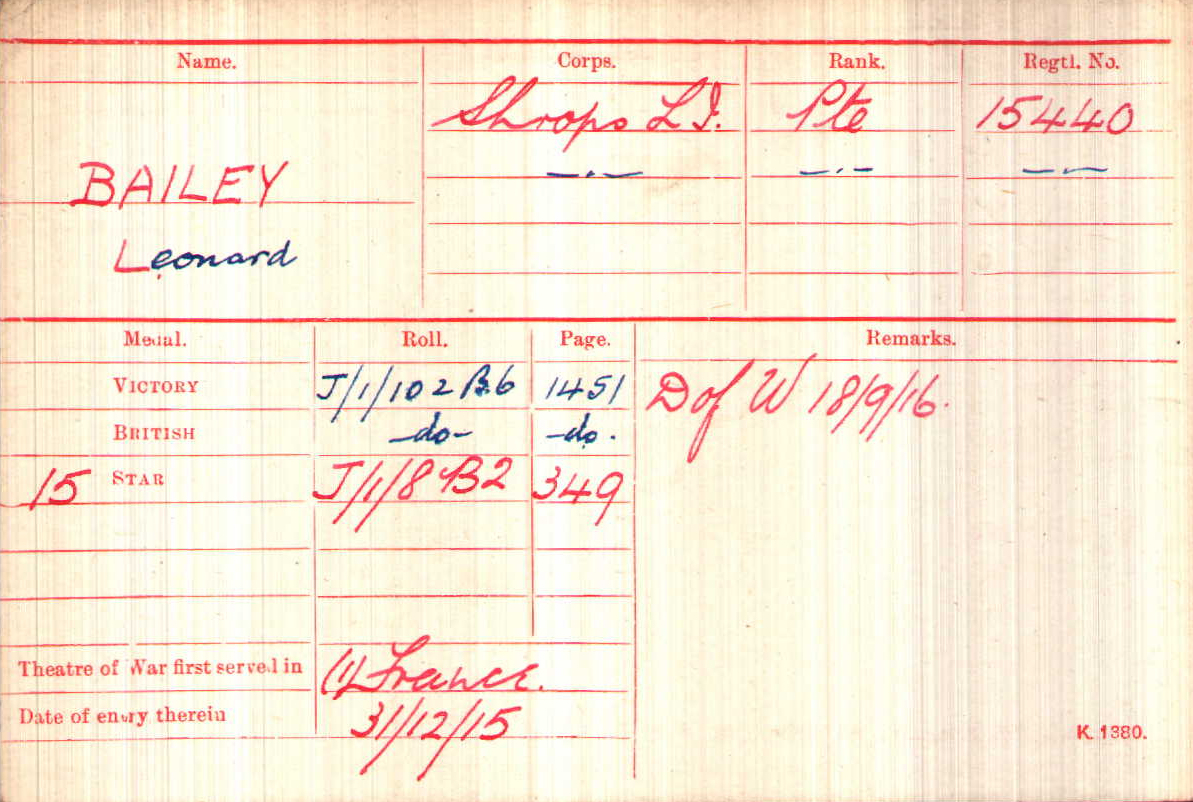 Name. Corps. Rank. Regtl. No.
Shrops L I. Pte 15440
BAILEY —.— —.— —.—
Leonard
Medal. Roll. Page. Remarks.
VICTORY J/1/102 B.6 1451 D of W 18/9/16.
BRITISH -do- -do.
15 STAR J/1/8 B2 349
Theatre of War first served in (1) France.
Date of entry therein 31/12/15
K. 1380.